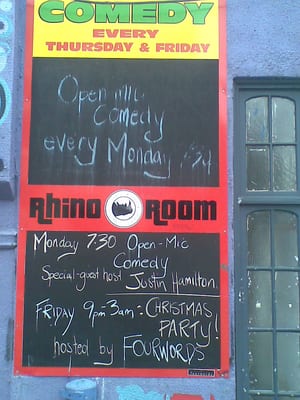 COMEDY
EVERY
THURSDAY & FRIDAY
Open mic
Comedy
every Monday
Rhino ROOM
MONDAY 7:30 OPEN-MIC
COMEDY
Special-guest host JUSTIN HAMILTON.
FRIDAY 9pm-3am: CHRISTMAS
PARTY!
hosted by FOURWORDS